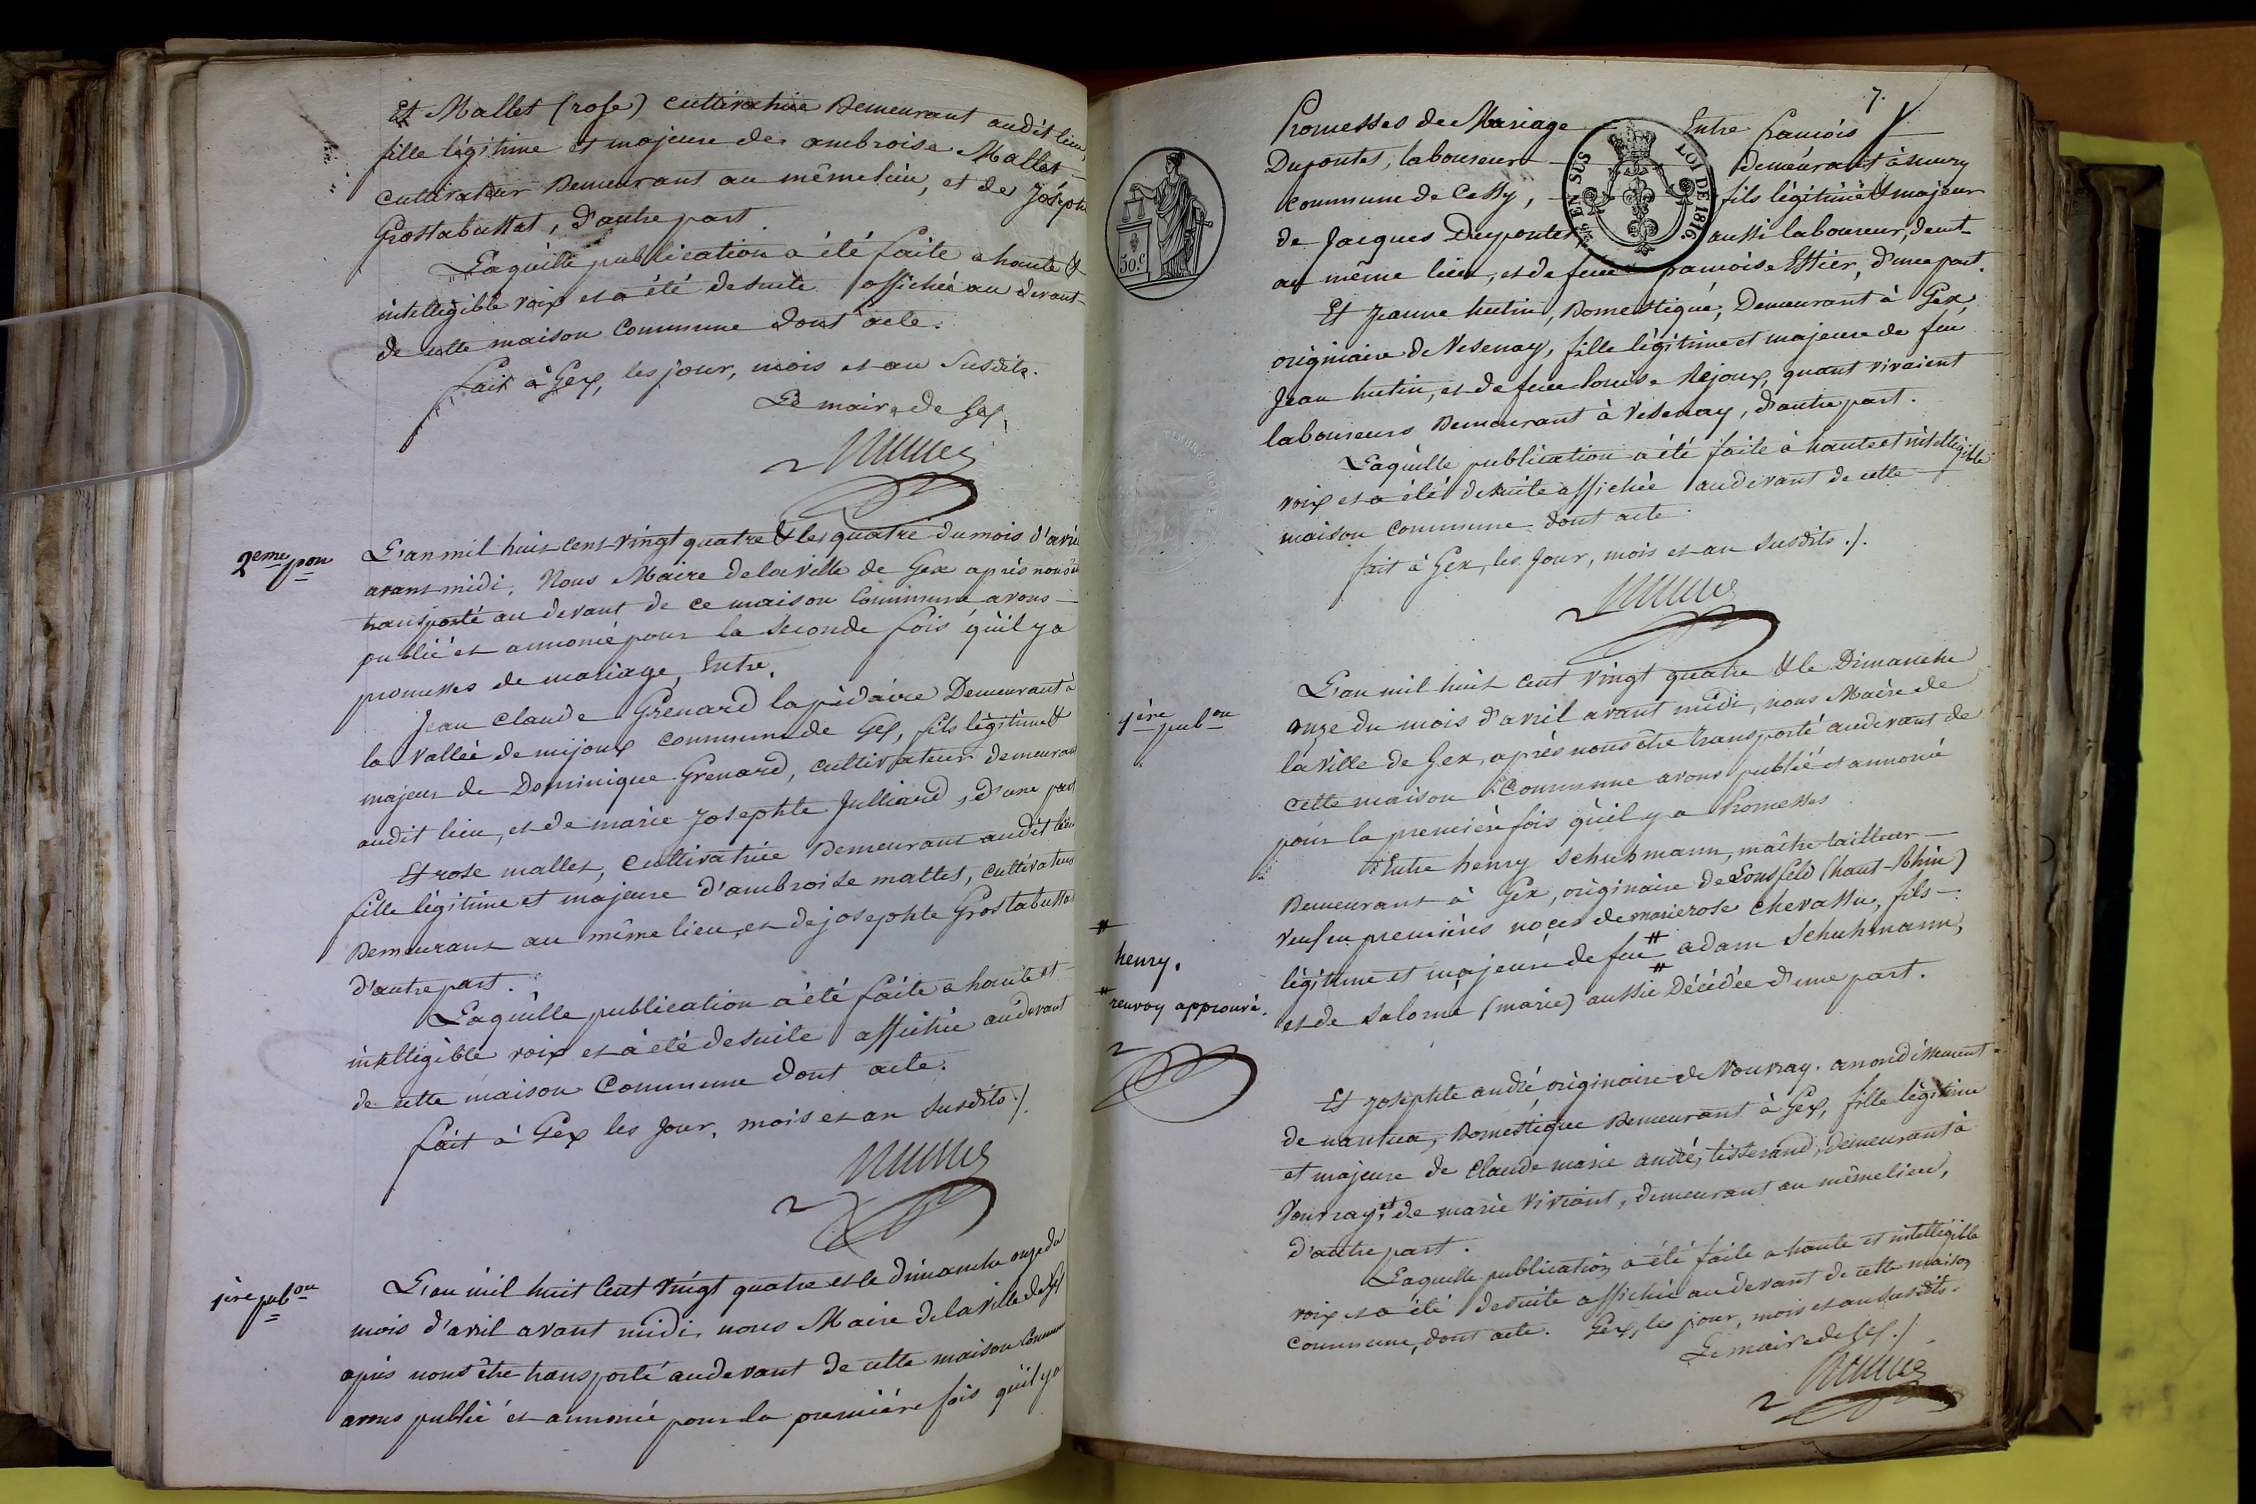 Et Mallet (rose) cultivatrice Demeurant audit lieu,
fille légitime et majeure de ambroise Mallet
cultivateur Demeurant au même lieu, et de Joséphte
Grostabussat, d'autre part
Laquelle publication a été faite a haute &
intelligible voix et a été desuite affichée au devant
de cette maison Commune dont acte.
fait à Gex, les jour, mois et an Susdits.
Le maire de Gex,
2eme pon
L'an mil huit cent vingt quatre & le quatre du mois d'avril
avant midi, Nous Maire de la ville de Gex après nous être
transporté au devant de ce maison Commune avons
publié et annoncé pour la seconde fois qu'il y a
promesses de mariage, Entre,
Jean Claude Grenard lapidaire Demeurant à
la Vallée de mijoux commune de Gex, fils légitime &
majeur de Dominique Grenard, cultivateur demeurant
audit lieu, et de marie Josephte Julliard, d'une part
Et rose mallet, Cultivatrice Demeurant audit lieu
fille légitime et majeure d'ambroise mallet, cultivateur
Demeurant au même lieu, et de josephte Grostabussat
d'autre part.
Laquelle publication a été faite a haute et
intelligible voix et a été desuite affichée au devant
de cette maison Commune dont acte.
fait à Gex les Jour, mois et an susdits ./.
1ère pubon
L'an mil huit Cent vingt quatre et le dimanche onze du
mois d'avril avant midi, nous Maire de la ville de Gex
après nous être transporté au devant de cette maison Commune
avons publié et annoncé pour la première fois qu'il y a
7.
Promesses de Mariage Entre françois
Dupontet, laboureur demeurant à
commune de Cessy, fils légitime & majeur
de Jacques Dupontet aussi laboureur, demt
au même lieu, et de feue françoise Estier, d'une part.
EN SUS LOI DE 1816.
50.c
Et Jeanne hutin, Domestique, Demeurant à Gex,
originaire de Vesenay, fille légitime et majeure de feu
Jean hutin, et de feue Louise Rejoux, quant vivaient
laboureurs Demeurant à Vesenay, d'autre part.
Laquelle publication a été faite à haute et intelligible
voix et a été desuite affichée au devant de cette
maison commune dont acte.
fait à Gex, les Jour, mois et an susdits ./.
1ère pubon
L'an mil huit cent vingt quatre & le Dimanche
onze du mois d'avril avant midi, nous Maire de
la ville de Gex, après nous être transporté au devant de
cette maison Commune avons publié et annoncé
pour la première fois qu'il y a Promesses
Entre henry Schuhmann, maître tailleur
Demeurant à Gex, originaire de Lonsfeld (haut-Rhin)
veuf en premières noces de marie rose Chevassu, fils
légitime et majeur de feu # adam Schuhmann,
et de Salomé (marie) # aussi Décédée d'une part.
#
henry.
# renvoy approuvé.
Et Josephte andré, originaire de Vouvray, arrondissement
de nantua, Domestique Demeurant à Gex, fille légitime
et majeure de Claude marie andré, tisserand, demeurant à
Vouvray, et de marie Viviant, demeurant au même lieu,
d'autre part.
Laquelle publication a été faite a haute et intelligible
voix et a été desuite affichée au devant de cette maison
commune, dont acte. Gex, les jour, mois et an susdits.
Le maire de Gex ./.